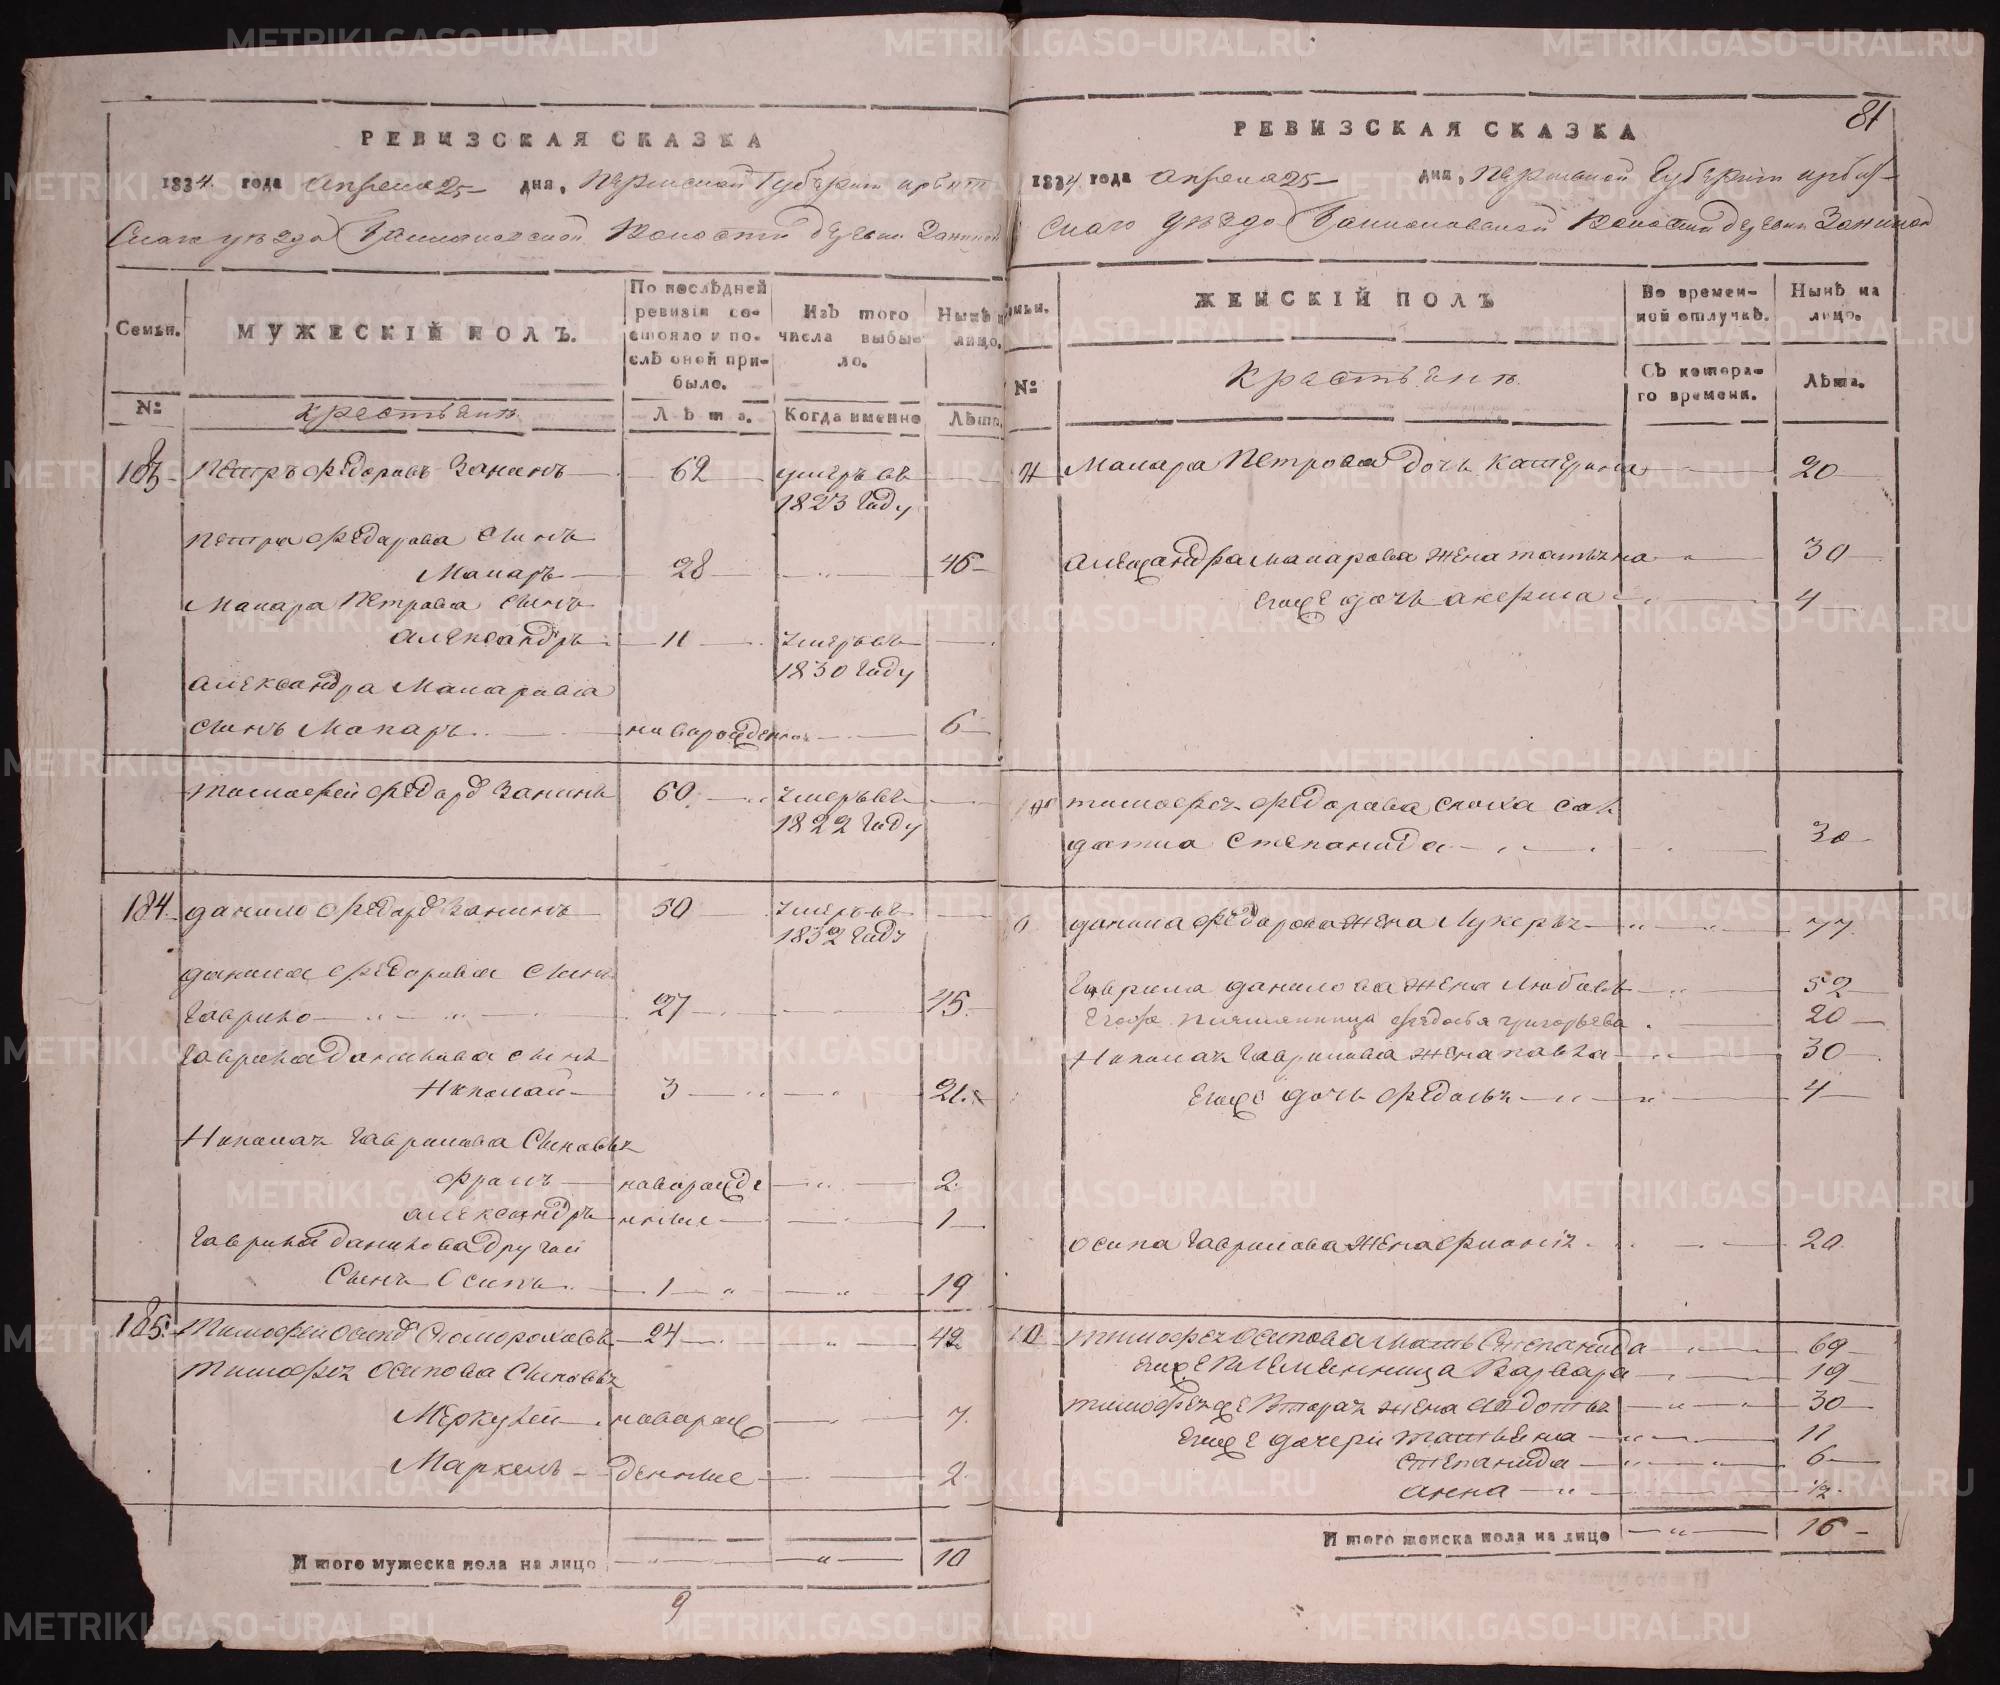 81
РЕВИЗСКАЯ СКАЗКА
1834 года апреля 25 дня, Пермской Губернии ирбит
скаго уезда Волости деревни Заниной
Семьи.
МУЖЕСКІЙ ПОЛЪ.
По послѣдней ревизіи состояло и послѣ оной прибыло.
Изъ того числа выбыло.
Нынѣ на лицо.
№
крестьянъ
Лѣта.
Когда именно
Лѣта.
183 Петръ Федоровъ Занинъ 62 умеръ въ
1823 Году
Петра Федорова сынъ
Макаръ 28 46
Макара Петрова сынъ
александръ 11 умеръ въ
1830 Году
александра Макарова
сынъ Макаръ новорожденной 6
тимофей Федоро Занинъ 60 умеръ въ
1822 Году
184 данило Федоро Занинъ 50 умеръ въ
1832 Году
данила Федорова сынъ
Гаврило 27 45
Гаврила данилова сынъ
Николай 3 21
Николая Гаврилова сыновья
фролъ новорожде 2
александръ нные 1
Гаврила данилова другой
сынъ Осипъ 1 19
185 Тимофей Осипо Скомороховъ 24 42
тимофея Осипова сыновья
Меркулей новорож 7
Маркелъ денные 2
Итого мужеска пола на лицо 10
9
РЕВИЗСКАЯ СКАЗКА
1834 года апреля 25 дня, Пермской Губернии ирбит
скаго уезда Волости деревни Заниной
Семьи.
ЖЕНСКІЙ ПОЛЪ
Во временной отлучкѣ.
Нынѣ на лицо.
№
Крестьянъ
Съ котораго времени.
Лѣта.
Макара Петрова дочь Катерина 20
александра макарова жена татьяна 30
егоже дочь 4
тимофея Федорова сноха сол
датка Степанида 30
данила Федорова жена Лукерья 77
Гаврила данилова жена Любовь 52
Егоже племянница федосья григорьева 20
Николая Гаврилова жена павла 30
егоже дочь федосья 4
осипа Гаврилова жена 20
тимофея осипова мать Степанида 69
егоже племянница Варвара 19
тимофея же вторая жена авдотья 30
егоже дочери татьяна 11
степанида 6
анна 1/2
Итого женска пола на лицо 16
METRIKI.GASO-URAL.RU